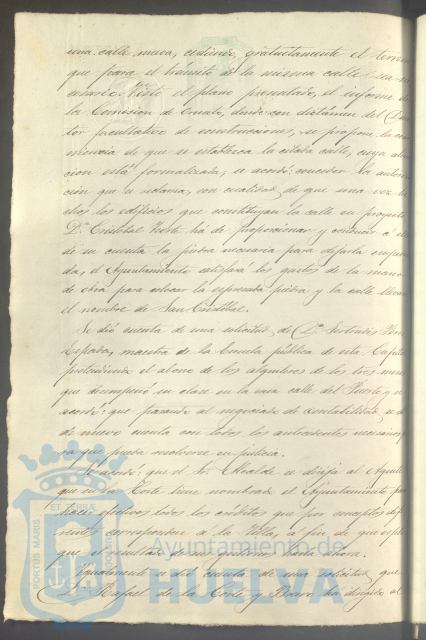 una calle nueva, cediendo gratuitamente el terreno
que para el tránsito de la misma calle sea ne-
cesario. Visto el plano presentado, el informe de
la Comision de Ornato, donde con dictámen del Direc-
tor facultativo de construcciones, se propone la con-
veniencia de que se establezca la citada calle, cuya aline-
cion está formalizada, se acordó: conceder la autoriza-
ción que se reclama, con cualidad de que una vez he-
chos los edificios que constituyan la calle en proyecto
Dn. Cristobal ha de proporcionar y conducir á
de su cuenta la piedra necesaria para dejarla empedra-
da, el Ayuntamiento satisfará los gastos de la mano
de obra para colocar la expresada piedra y la calle llevará
el nombre de San Cristobal.
Se dió cuenta de una solicitud de Dª Gertrudis
Espada, maestra de la Escuela pública de esta Capital
pretendiendo el abono de los alquileres de los tres meses
que desempeñó su clase en la casa calle del Puerto y se
acordó: que pasando al negociado de contabilidad, se dé
de nuevo cuenta con todos los antecedentes necesarios pa-
ra que pueda resolverse en justicia.
Se acordó: que el Sr. Alcalde se dirija al Agente
que en la Corte tiene nombrado el Ayuntamiento para
hacer efectivos todos los créditos que por conceptos dife-
rentes corresponden á la Villa, á fin de que
que el resultado de sus gestiones hasta ahora.
Igualmente se dió cuenta de una solicitud que
Dn. Rafael de la Corte y Bravo ha dirigido al
PORTUS MARIS
ET TERRÆ
CUSTODIA
Ayuntamiento de
HUELVA